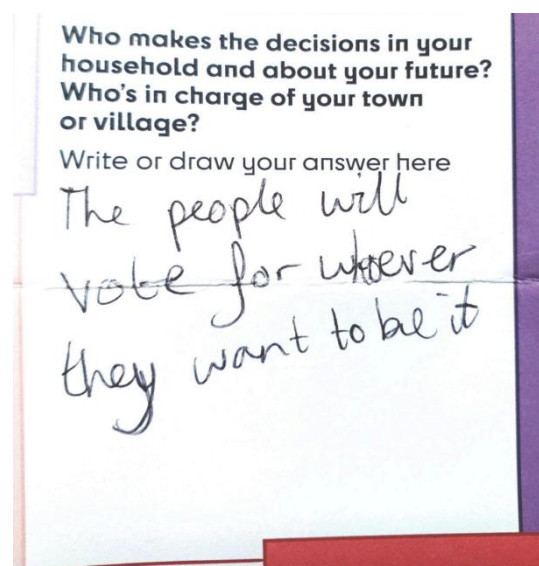 Who makes the decisions in your
household and about your future?
Who's in charge of your town
or village?
Write or draw your answer here
The people will
vote for whoever
they want to be it